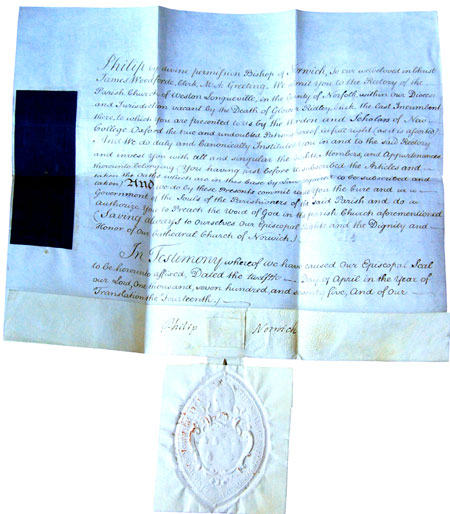 Philip by divine permission Bishop of Norwich, To our welbeloved in Christ
James Woodforde, Clerk, M.A. Greeting, We admit you to the Rectory of the
Parish Church of Weston Longueville, in the County of Norfolk within our Diocese
and Jurisdiction vacant by the Death of Gloster Ridley, Clerk, the Last Incumbent
there, to which you are presented to us by the Warden and Scholars of New
College Oxford the true and undoubted Patrons of in full right (as it is asserted)
And We do duly and Canonically Institute you in and to the said Rectory
and invest you with all and singular the Rights, Members, and Appurtenances
thereunto belonging (You having just before us subscribed the Articles and
taken the Oaths which are in this Case by Law required to be subscribed and
taken) And we do by these Presents commit unto you the Cure and
Government of the Souls of the Parishioners of the said Parish and do
authorize you to Preach the Word of God in the Parish Church aforementioned
(Saving always to Ourselves Our Episcopal Rights and the Dignity and
Honor of Our Cathedral Church of Norwich)
In Testimony whereof we have caused Our Episcopal Seal
to be hereunto affixed, Dated the twelfth Day of April in the Year of
our Lord, One thousand, seven hundred, and seventy five, And of Our
Translation the Fourteenth
Philip Norwich